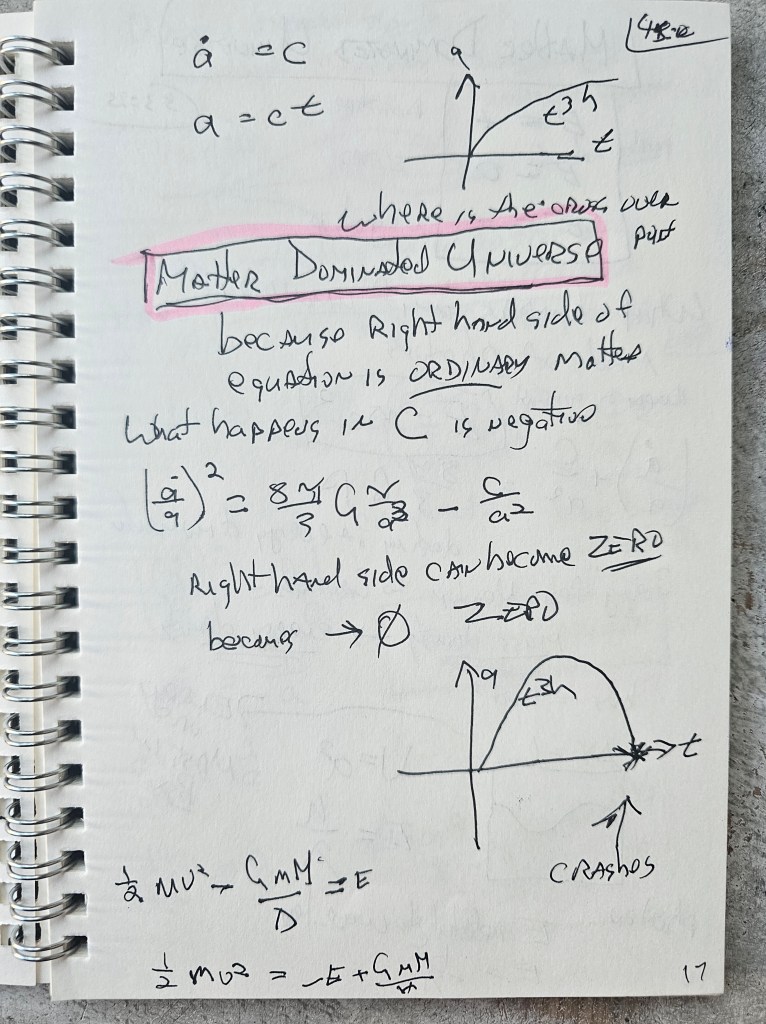 ȧ = C
a = c t
a
t 3/2
t
where is the cross over
part
Matter Dominated Universe
because Right hand side of
equation is ORDINARY Matter
What happens in C is negative
(ȧ/a)² = 8π/3 G ν/a³ - C/a²
Right hand side can become ZERO
becomes → ∅ ZERO
a
t 3/2
t
CRASHES
½ mv² - GmM/D = E
½ mv² = -E + GmM/
17